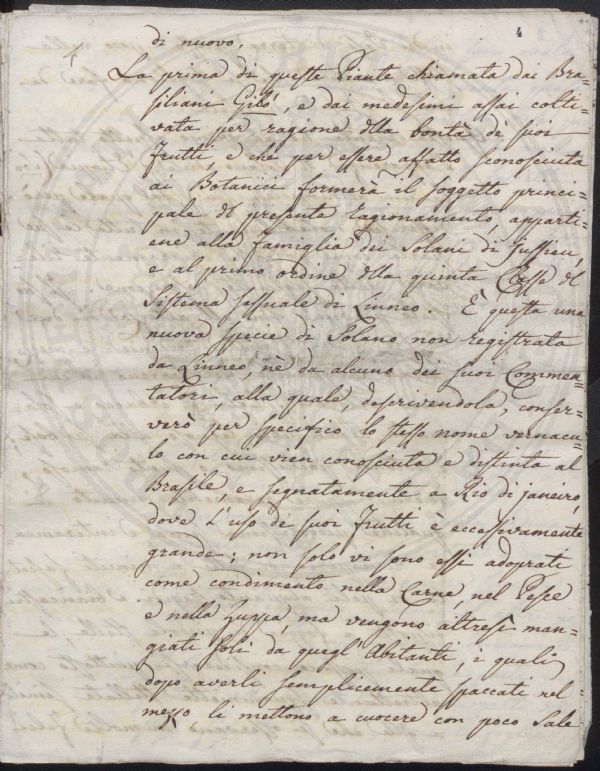 4
di nuovo.
La prima di queste Piante chiamata dai Bra=
siliani Giló, e dai medesimi assai colti=
vata per ragione dlla bontà dè suoi
frutti, e che per essere affatto sconosciuta
ai Botanici formerà il soggetto princi=
pale dl presente ragionamento, apparti=
ene alla famiglia dei Solani di Jussieu,
e al primo ordine dlla quinta Classe dl
Sistema sessuale di Linneo. È questa una
nuova specie di Solano non registrata
da Linneo, nè da alcuno dei suoi Commen=
tatori, alla quale, descrivendola, conser=
verò per specifico lo stesso nome vernacu=
lo con cui vien conosciuta e distinta al
Brasile, e segnatamente a Rio di janeiro,
dove l'uso de suoi frutti è eccessivamente
grande; non solo vi sono essi adoprati
come condimento nella Carne, nel Pesce
e nella Zuppa, ma vengono altresì man=
giati soli da quegl' Abitanti, i quali
dopo averli semplicemente spaccati nel
mezzo li mettono a cuocere con poco Sale